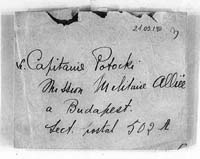 21.09.190
Capitanie Potocki
Mission Militaire Alliée
a Budapest.
Sect. postal 502 A